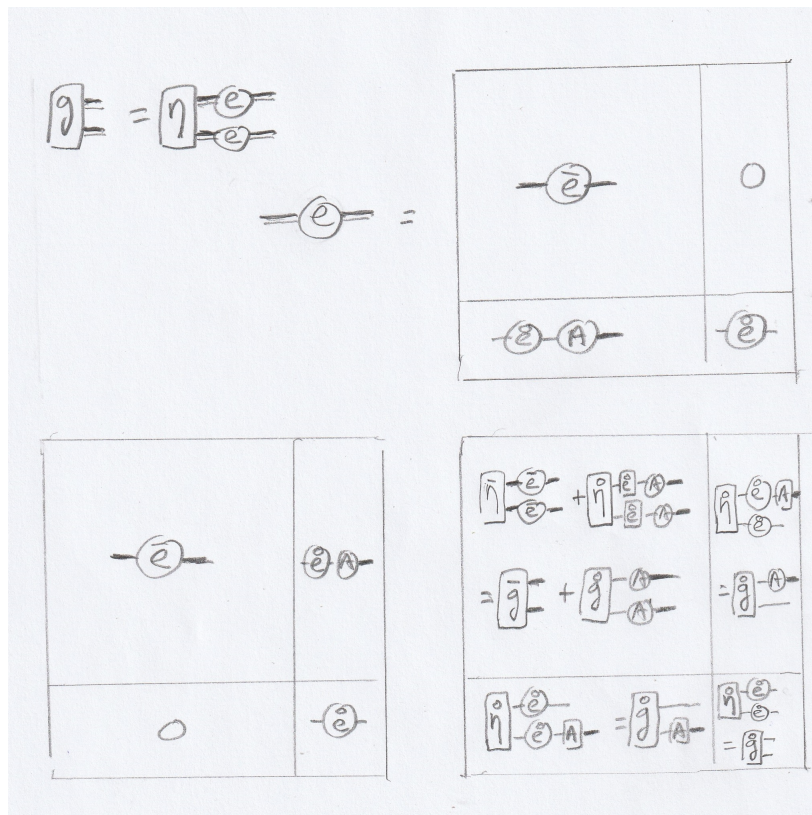 g = η e
e
e =
ē 0
e̊ A e̊
ē e̊ A
0 e̊
η̄ ē + η̊ e̊ A
ē e̊ A
= ḡ + g̊ A
A
η̊ e̊ A
e̊
= g̊ A
η̊ e̊ = g̊
e̊ A A
η̊ e̊
e̊
= g̊